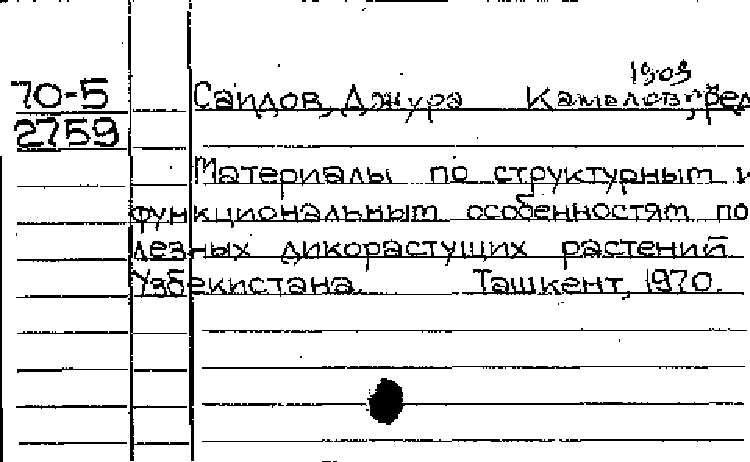 1909
70-5
2759
Саидов, Джура Камалович, ред
Материалы по структурным и
функциональным особенностям по
лезных дикорастущих растений
Узбекистана. Ташкент, 1970.